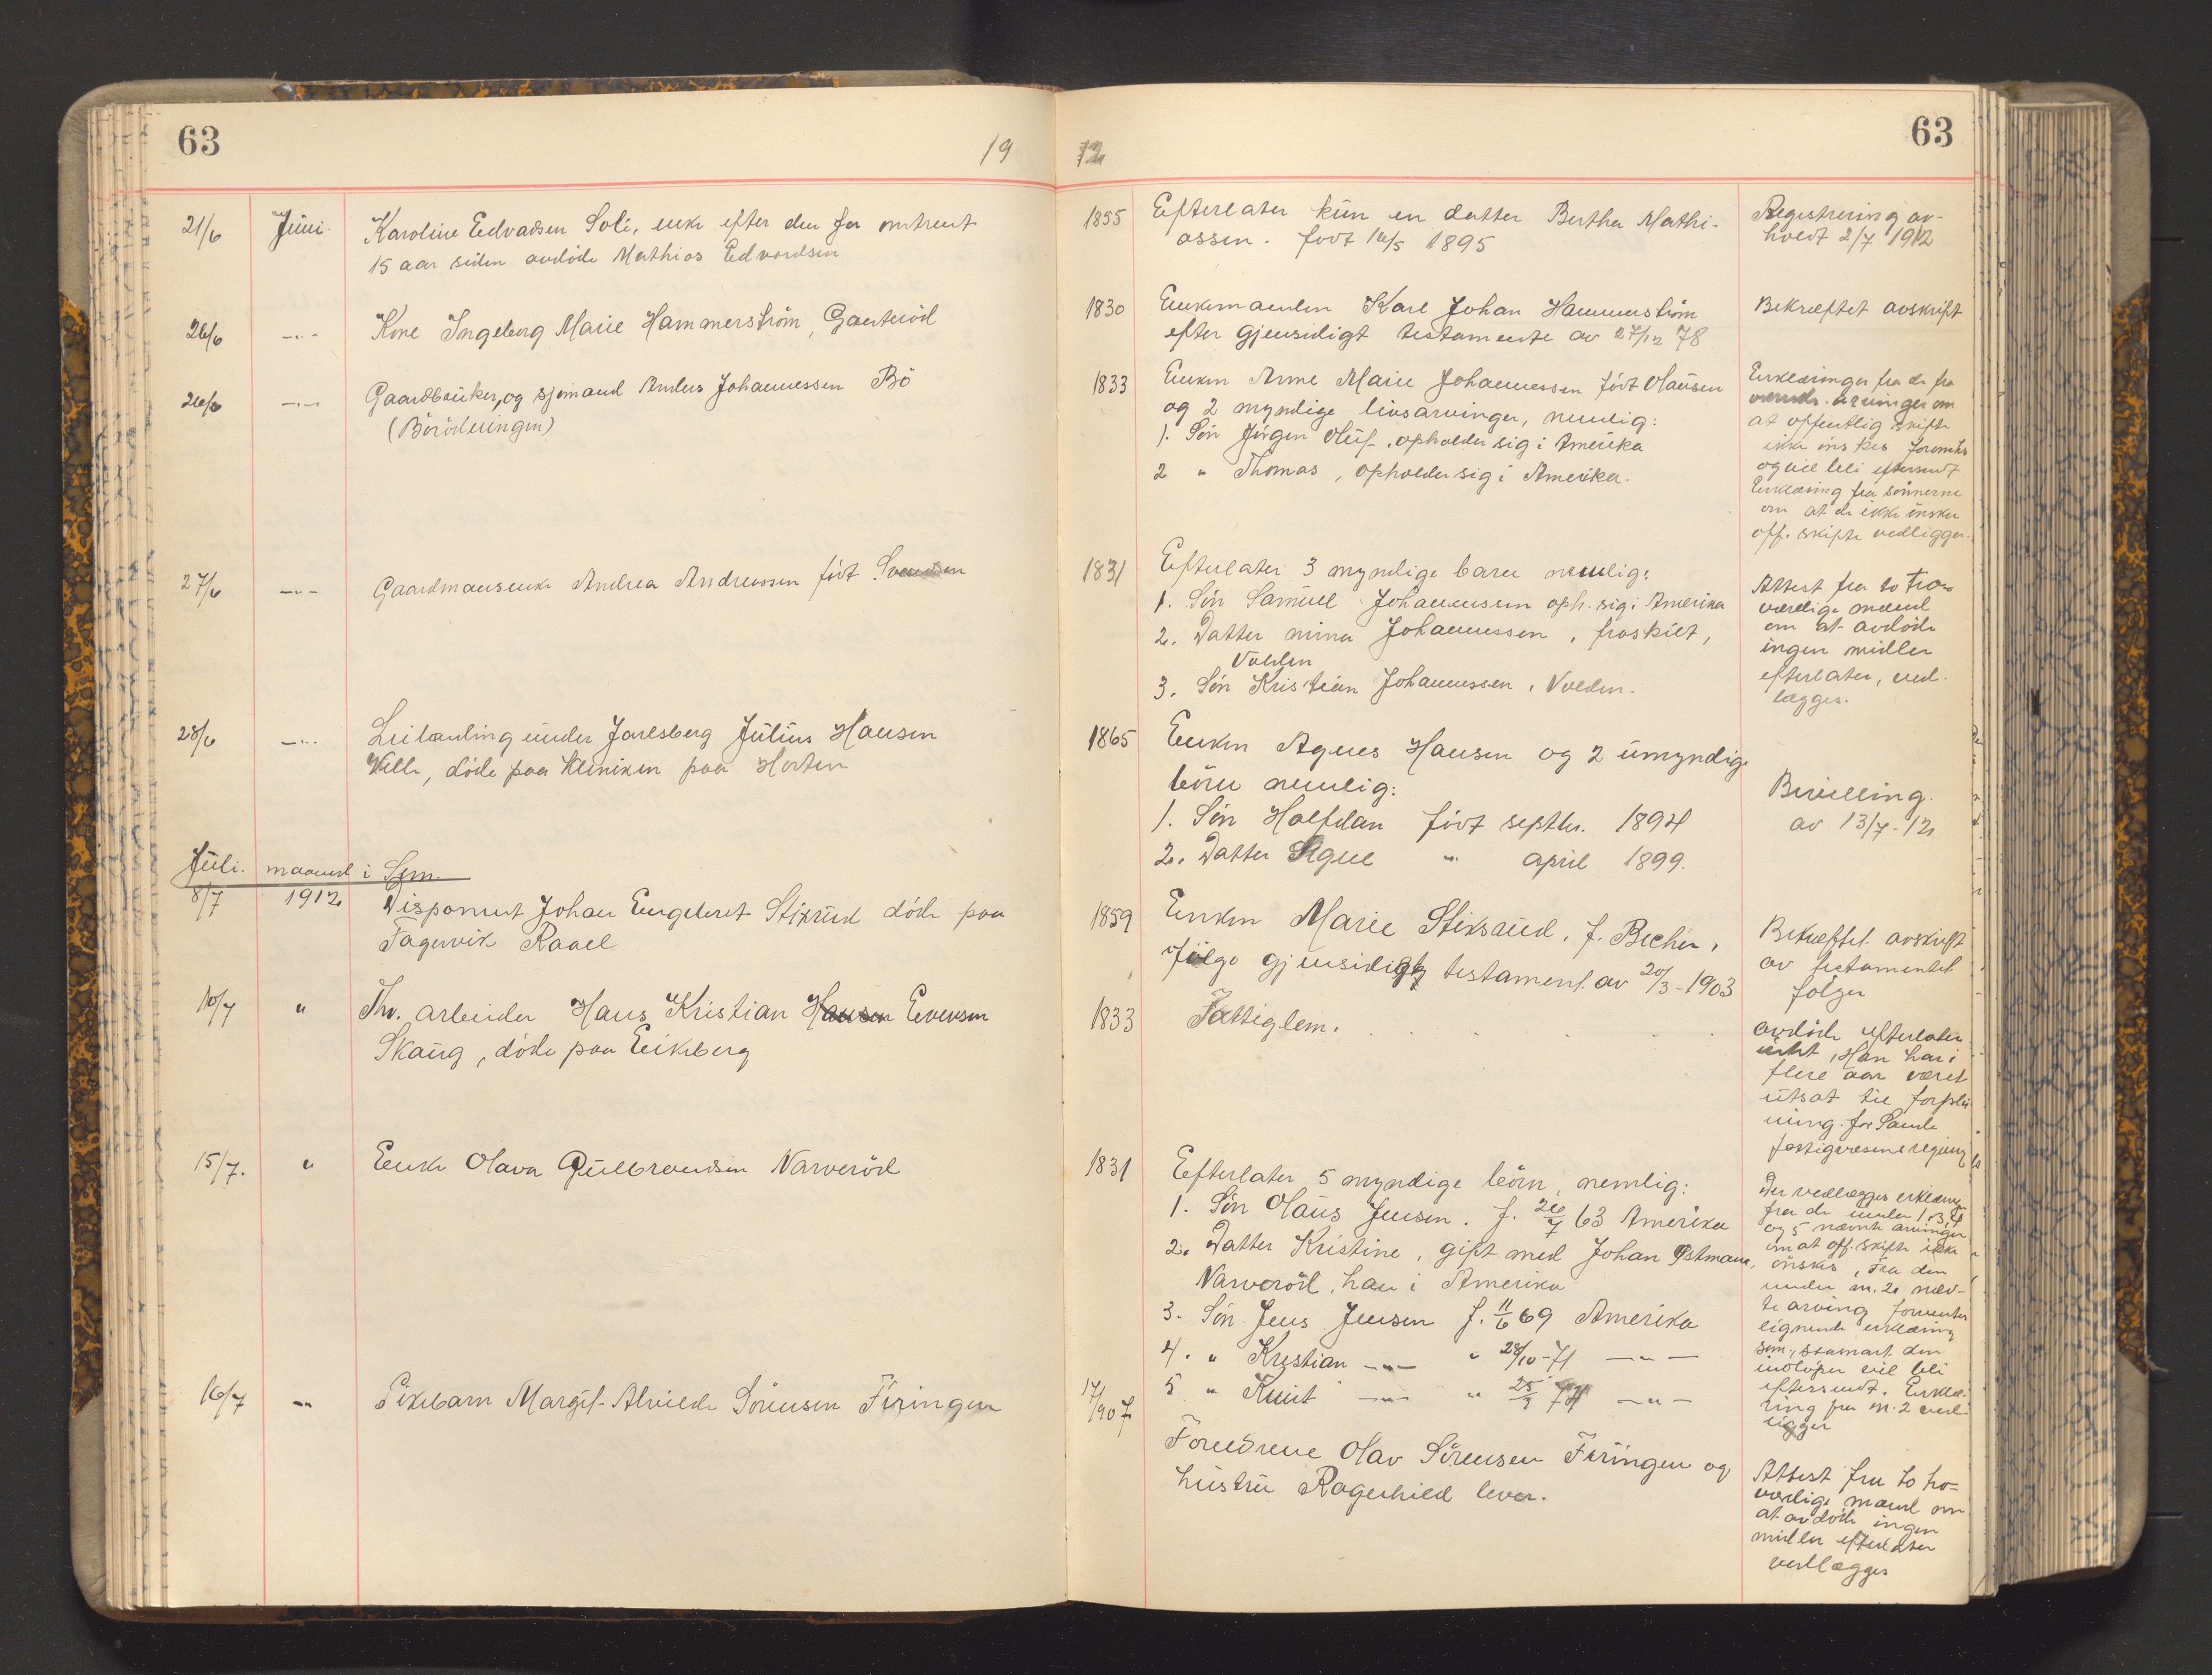 63
19
12
63
21/6 Juni. Karoline Edvadsen Soli, enke efter den for omtrent
15 aar siden avdøde Mathias Edvardsen
1855 Efterlater kun en datter Bertha Mathi-
assen. født 16/5 1895
Registrering av-
holdt 2/7 1912
26/6 -"- Kone Ingeborg Marie Hammerstrøm, Gauterød
1830 Enkemanden Karl Johan Hammerstrøm
efter gjensidigt testamente av 27/12 78
Bekræftet avskrift
26/6 -"- Gaardbruker, og sjømand Anders Johannessen Bø
(Børødningen)
1833 Enken Anne Marie Johannessen født Olausen
og 2 myndige livsarvinger, nemlig:
1. Søn Jørgen Oluf, opholder sig i Amerika
2 " Thomas, opholder sig i Amerika.
Erklæringer fra de fra
værende arvinger om
at offentlig skifte
ikke ønskes forventes
og vil bli eftersendt
Erklæring fra sønnerne
om at de ikke ønsker
off. skifte vedligger.
27/6 -"- Gaardmansenke Andrea Andreassen født Svendsen
1831 Efterlater 3 myndige barn nemlig:
1. Søn Samuel Johannessen oph. sig i Amerika
2. Datter Mina Johannessen, fraskilt,
Volden
3. Søn Kristian Johannessen, Volden.
Attest fra to tro-
værdige mænd
om at avdøde
ingen midler
efterlater, ved-
lægges.
28/6 -"- Leilænding under Jarlsberg Julius Hansen
Velle, døde paa Kliniken paa Horten
1865 Enken Agnes Hansen og 2 umyndige
børn nemlig:
1. Søn Halfdan født septbr. 1894
2. Datter Signe " april 1899.
Bevilling.
av 13/7-12
Juli. maaned i Sem.
8/7 1912 Disponent Johan Engebret Stixrud døde paa
Fagervik Raael
1859 Enken Marie Stiksrud, f. Becher,
ifølge gjensidigt testament. av 20/3-1903
Bekræftet avskrift
av testamentet
følger
10/7 " Fhv. arbeider Hans Kristian Hansen Evensen
Skaug, døde paa Eikeberg
1833 Fattiglem.
avdøde efterlater
intet, Han har i
flere aar været
utsat til forplei
ning. for Sande
fattigvæsens regning
15/7. " Enke Olava Gulbrandsen Narverød
1831 Efterlater 5 myndige børn, nemlig:
1. Søn Olaus Jensen. f. 26/7 63 Amerika
2. Datter Kristine, gift med Johan Østmann,
Narverød, han i Amerika
3. Søn Jens Jensen f. 11/6 69 Amerika
4. " Kristian -"- " 28/10-71 -"-
5 " Knut -"- " 25/3 74 -"-
Der vedlægges erklæring
fra de under 1, 3, 4
og 5 nævnte arvinger
om at off. skifte ikke
ønskes, Fra den
under nr. 2 næv-
te arving forventes
lignende erklæring
som, saasnart den
indløper vil bli
eftersendt. Erklæ-
ring fra nr. 2 ved-
ligger
16/7 -"- Pikebarn Margit Alvilde Sørensen Firingen
17/1907
Forældrene Olav Sørensen Firingen og
hustru Ragnhild lever.
Attest fra to tro-
værdige mænd om
at avdøde ingen
midler efterlater
vedlægges